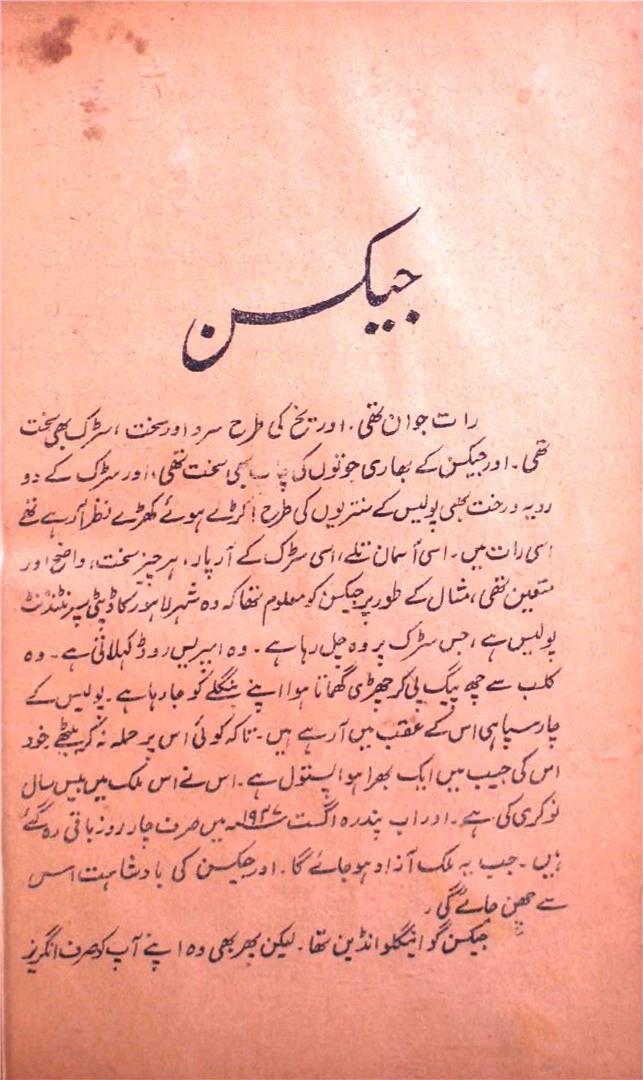 جیکسن
رات جوان تھی۔ اور یخ کی طرح سرد اور سخت، سڑک بھی سخت
تھی۔ اور جیکسن کے بھاری جوتوں کی چاپ بھی سخت تھی، اور سڑک کے دو
رویہ درخت بھی پولیس کے سنتریوں کی طرح اکڑے ہوئے کھڑے نظر آ رہے تھے
اسی رات میں۔ اسی آسمان تلے، اسی سڑک کے آر پار، ہر چیز سخت، واضح اور
متعین تھی، مثال کے طور پر جیکسن کو معلوم تھا کہ وہ شہر لاہور کا ڈپٹی سپرنٹنڈنٹ
پولیس ہے، جس سڑک پر وہ چل رہا ہے۔ وہ ایمپریس روڈ کہلاتی ہے۔ وہ
کلب سے چھ پیگ پی کر چھڑی گھماتا ہوا اپنے بنگلے کو جا رہا ہے۔ پولیس کے
چار سپاہی اس کے عقب میں آ رہے ہیں۔ تاکہ کوئی اس پر حملہ نہ کر بیٹھے خود
اس کی جیب میں ایک بھرا ہوا پستول ہے۔ اس نے اس ملک میں بیس سال
نوکری کی ہے۔ اور اب پندرہ اگست ۱۹۴۷ء میں صرف چار روز باقی رہ گئے
ہیں۔ جب یہ ملک آزاد ہو جائے گا۔ اور جیکسن کی بادشاہت اس
سے چھن جائے گی۔
جیکسن گو اینگلو انڈین تھا۔ لیکن پھر بھی وہ اپنے آپ کو صرف انگریز